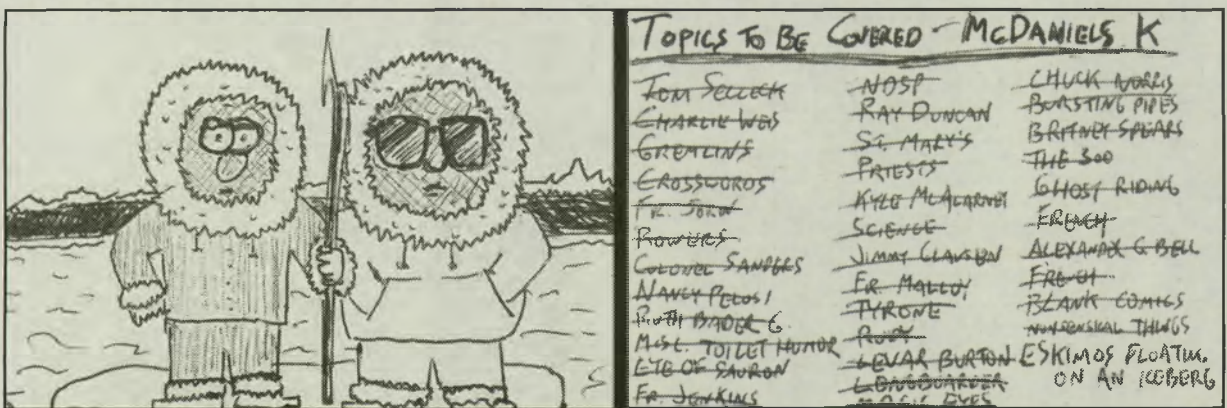 TOPICS TO BE COVERED - MCDANIELS K
TOM SELLECK
CHARLIE WEIS
GREMLINS
CROSSWORDS
FR. JOHN
ROWERS
COLONEL SANDERS
NANCY PELOSI
RUTH BADER G
MISC. TOILET HUMOR
EYE OF SAURON
FR. JENKINS
NDSP
RAY DUNCAN
ST. MARY'S
PRIESTS
KYLE MCALARNEY
SCIENCE
JIMMY CLAUSEN
FR. MALLOY
TYRONE
RUDY
LEVAR BURTON
LONGBOARDER
MAGIC EYES
CHUCK NORRIS
BURSTING PIPES
BRITNEY SPEARS
THE 300
GHOST RIDING
FRENCH
ALEXANDER G BELL
FRENCH
BLANK COMICS
NONSENSICAL THINGS
ESKIMOS FLOATING
ON AN ICEBERG